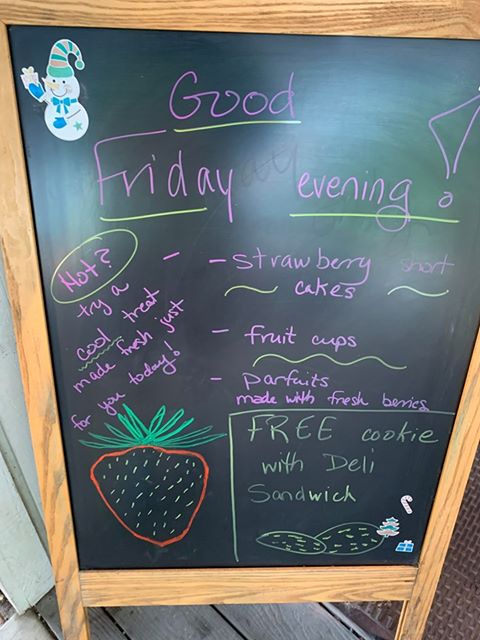 Good
Friday evening!
Hot?
try a
cool treat
made fresh just
for you today!
- - strawberry short
cakes
- fruit cups
- parfaits
made with fresh berries
FREE cookie
with Deli
Sandwich